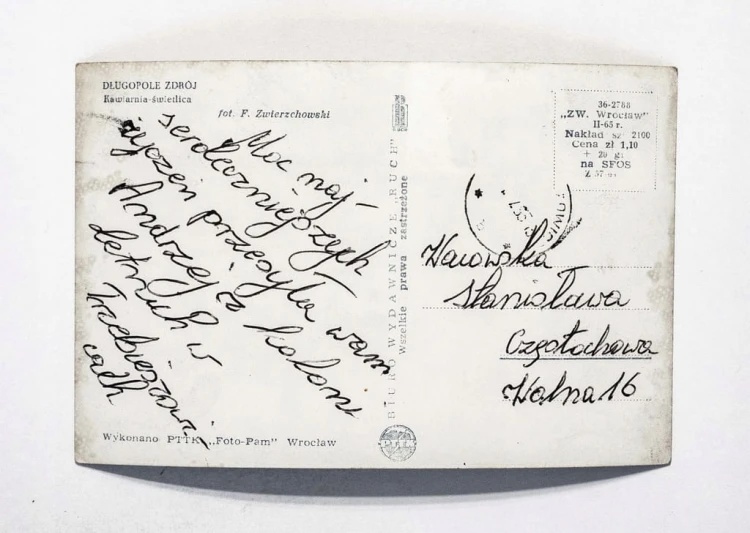 DŁUGOPOLE ZDRÓJ
Kawiarnia-świetlica
fot. F. Zwierzchowski
Moc naj-
serdeczniejszych
życzeń przesyła wam
Andrzej z koloni
letnich w
Trzebieszowi-
cach
Wykonano PTTK „Foto-Pam" Wrocław
BIURO WYDAWNICZE „RUCH"
Wszelkie prawa zastrzeżone
36-2788
„ZW. Wrocław"
II-65 r.
Nakład sz 2100
Cena zł 1,10
+ 20 gr
na SFOS
Stanisława
Częstochowa
Wolna 16